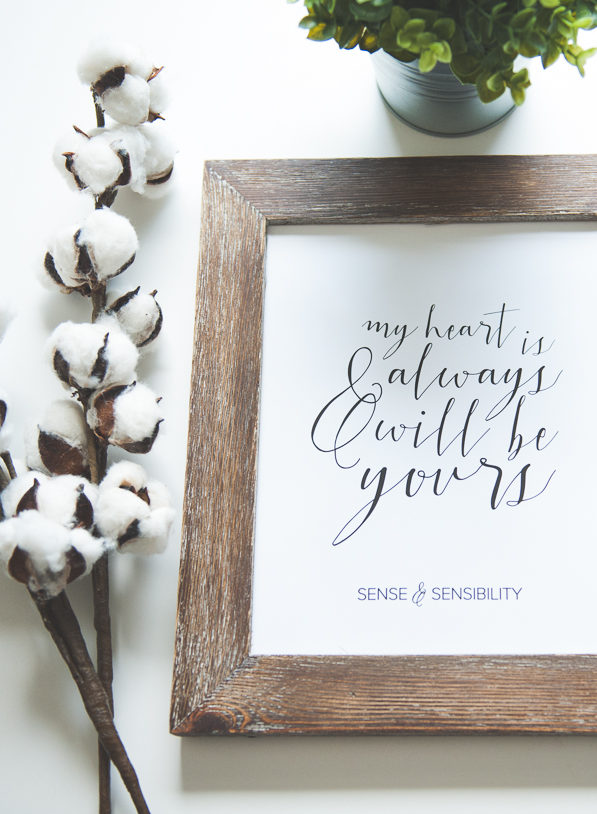 my heart is
& always
will be
yours
SENSE & SENSIBILITY